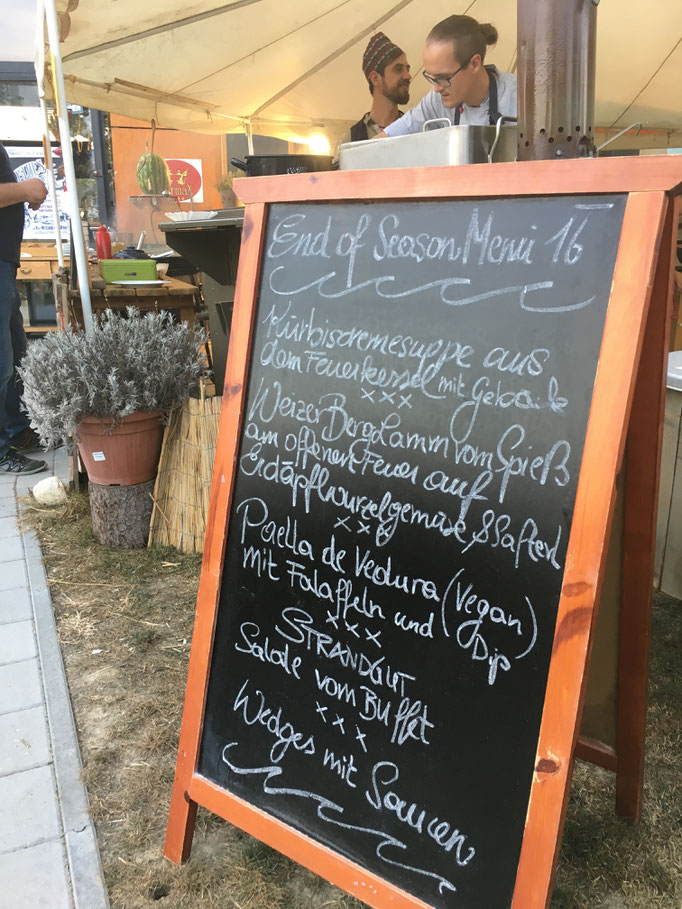 End of Season Menü 16
Kürbiscremesuppe aus
dem Feuerkessel mit Gebäck
xxx
Weizer Berglamm vom Spieß
am offenen Feuer auf
Erdäpflwurzelgemüse & Safterl
xxx
Paella de Vedura (Vegan)
mit Falaffeln und Dip
xxx
STRANDGUT
Salate vom Buffet
xxx
Wedges mit Saucen